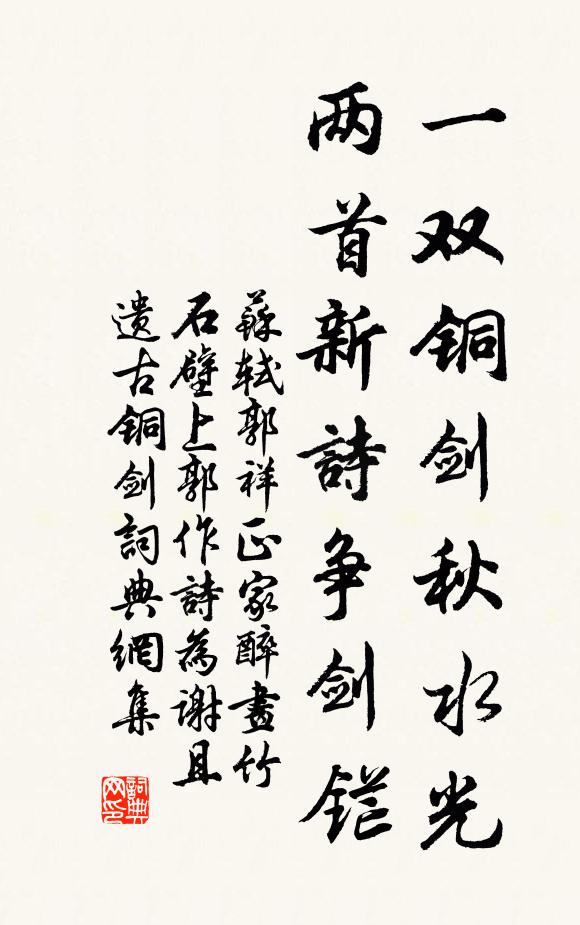 一双铜剑秋水光
两首新詩争剑铓
蘇轼郭祥正家醉畫竹
石壁上郭作詩為谢且
遗古铜剑詞典網集
詞典网印